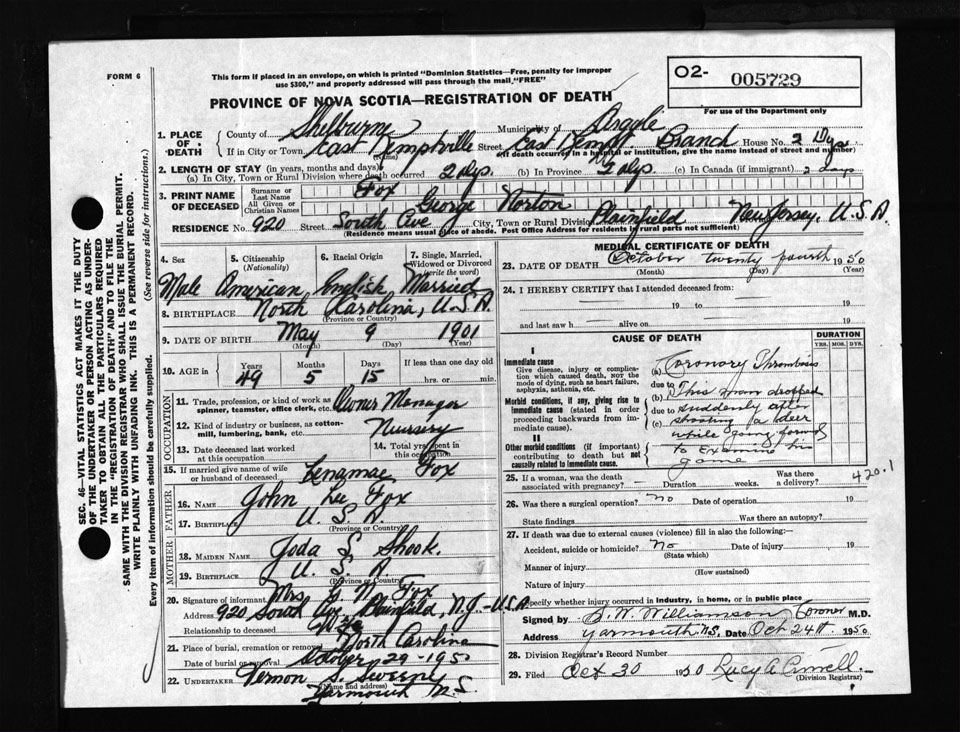 FORM 6
This form if placed in an envelope, on which is printed "Dominion Statistics—Free, penalty for improper
use $300," and properly addressed will pass through the mail, "FREE"
O2- 005729
For use of the Department only
PROVINCE OF NOVA SCOTIA—REGISTRATION OF DEATH
SEC. 46—VITAL STATISTICS ACT MAKES IT THE DUTY
OF THE UNDERTAKER OR PERSON ACTING AS UNDER-
TAKER TO OBTAIN ALL THE PARTICULARS REQUIRED
IN THE "REGISTRATION OF DEATH" AND TO FILE THE
SAME WITH THE DIVISION REGISTRAR WHO SHALL ISSUE THE BURIAL PERMIT.
WRITE PLAINLY WITH UNFADING INK. THIS IS A PERMANENT RECORD.
Every item of information should be carefully supplied. (See reverse side for instructions.)
1. PLACE OF DEATH
County of Shelburne Municipality of Argyle
If in City or Town East Kemptville Street East Kempt. Branch House No. 2 Dys.
(Name) (If death occurred in a hospital or institution, give the name instead of street and number)
2. LENGTH OF STAY (in years, months and days)
(a) In City, Town or Rural Division where death occurred 2 dys. (b) In Province 2 dys. (c) In Canada (if immigrant) 2 days
3. PRINT NAME OF DECEASED
Surname or Last Name Fox
All Given or Christian Names George Norton
RESIDENCE No. 920 Street South Ave City, Town or Rural Division Plainfield New Jersey, U.S.A.
(Residence means usual place of abode. Post Office Address for residents in rural parts not sufficient)
4. Sex
5. Citizenship (Nationality)
6. Racial Origin
7. Single, Married, Widowed or Divorced (write the word)
Male American, English, Married
8. BIRTHPLACE North Carolina, U.S.A
(Province or Country)
9. DATE OF BIRTH May 9 1901
(Month) (Day) (Year)
10. AGE in Years Months Days If less than one day old
49 5 15 hrs. or min.
OCCUPATION
11. Trade, profession, or kind of work as spinner, teamster, office clerk, etc. Owner Manager
12. Kind of industry or business, as cotton-mill, lumbering, bank, etc. Nursery
13. Date deceased last worked at this occupation
14. Total yrs. spent in this occupation
15. If married give name of wife or husband of deceased Lenamae Fox
FATHER
16. NAME John Lee Fox
17. BIRTHPLACE U. S. A.
(Province or Country)
MOTHER
18. MAIDEN NAME Joda L Shook.
19. BIRTHPLACE U. S. A.
(Province or Country)
20. Signature of informant Mrs G. N. Fox
Address 920 South Ave, Plainfield, N.J.-USA
Relationship to deceased Wife
21. Place of burial, cremation or removal North Carolina
Date of burial or removal October 29-1950
22. UNDERTAKER Vernon S. Sweeny
(Name and address)
Yarmouth N.S.
MEDICAL CERTIFICATE OF DEATH
23. DATE OF DEATH October twenty fourth 1950
(Month) (Day) (Year)
24. I HEREBY CERTIFY that I attended deceased from:
19 to 19
and last saw h alive on 19
CAUSE OF DEATH
DURATION
YRS. MOS. DYS.
I
Immediate cause
Give disease, injury or complication which caused death, NOT the mode of dying, such as heart failure, asphyxia, asthenia, etc.
Morbid conditions, if any, giving rise to immediate cause (stated in order proceeding backwards from immediate cause).
II
Other morbid conditions (if important) contributing to death but not causally related to immediate cause.
(a) Coronary Thrombosis
due to
(b) This man dropped
due to suddenly after
(c) shooting a deer
while going forward
to examine his
game
420.1
25. If a woman, was the death associated with pregnancy? Duration weeks. Was there a delivery?
26. Was there a surgical operation? No Date of operation 19
State findings Was there an autopsy?
27. If death was due to external causes (violence) fill in also the following:
Accident, suicide or homicide? No Date of injury 19
(State which)
Manner of injury
(How sustained)
Nature of injury
Specify whether injury occurred in industry, in home, or in public place
Signed by B. W. Williamson Coroner M.D.
Address Yarmouth N.S. Date Oct 24th 1950
28. Division Registrar's Record Number
29. Filed Oct 30 1950 Lucy A
(Division Registrar)